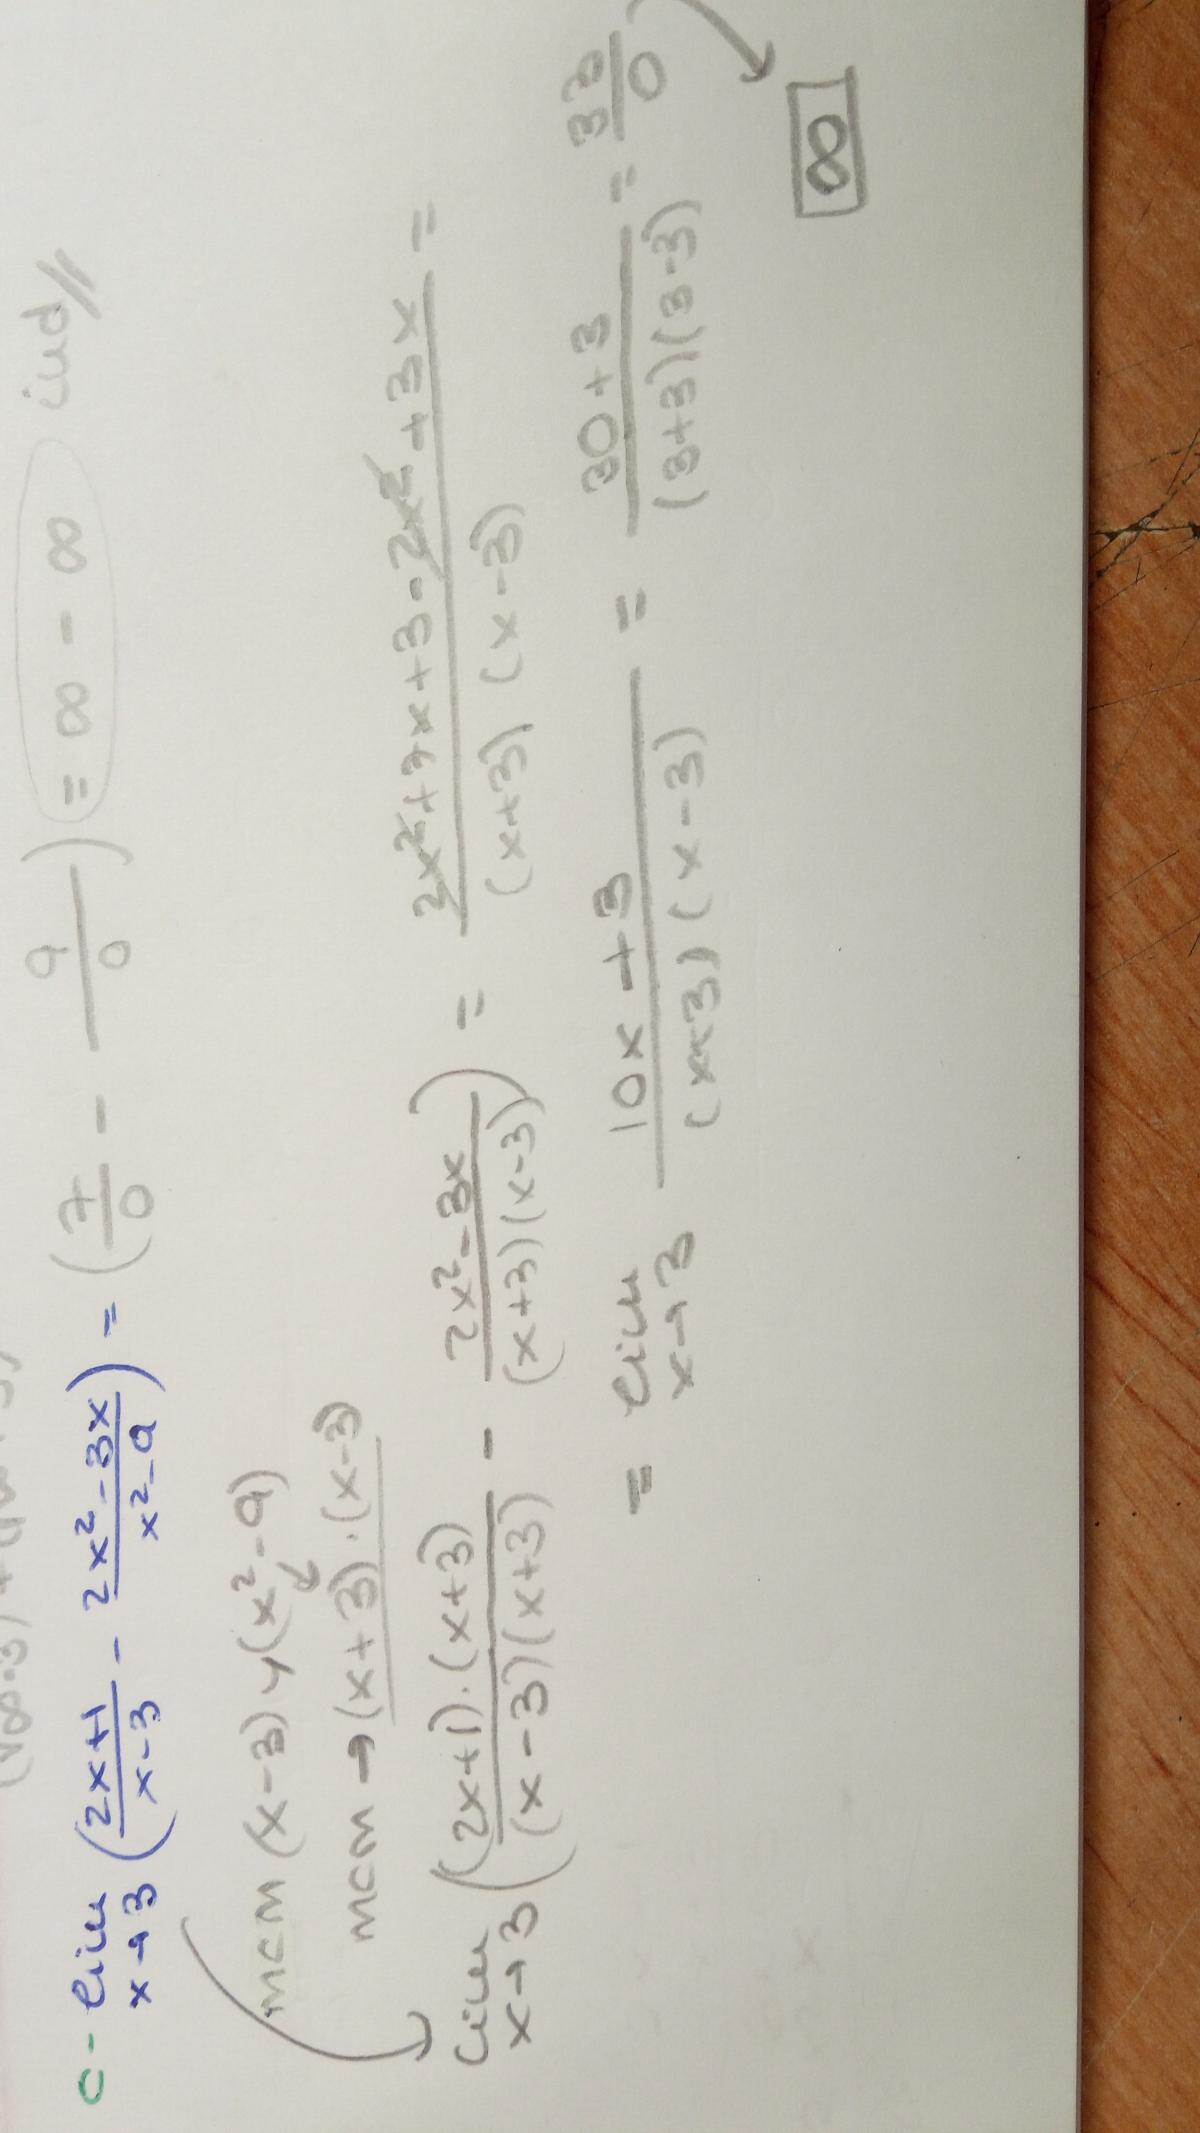 c- lim x→3 ((2x+1)/(x-3) - (2x²-3x)/(x²-9)) = (7/0 - 9/0) = ∞ - ∞ ind//
mcm (x-3) y (x²-9)
mcm → (x+3)·(x-3)
lim x→3 ((2x+1)·(x+3)/(x-3)(x+3) - (2x²-3x)/(x+3)(x-3)) = (2x²+7x+3-2x²+3x)/(x+3)(x-3) =
= lim x→3 (10x+3)/(x+3)(x-3) = (30+3)/(3+3)(3-3) = 33/0
∞